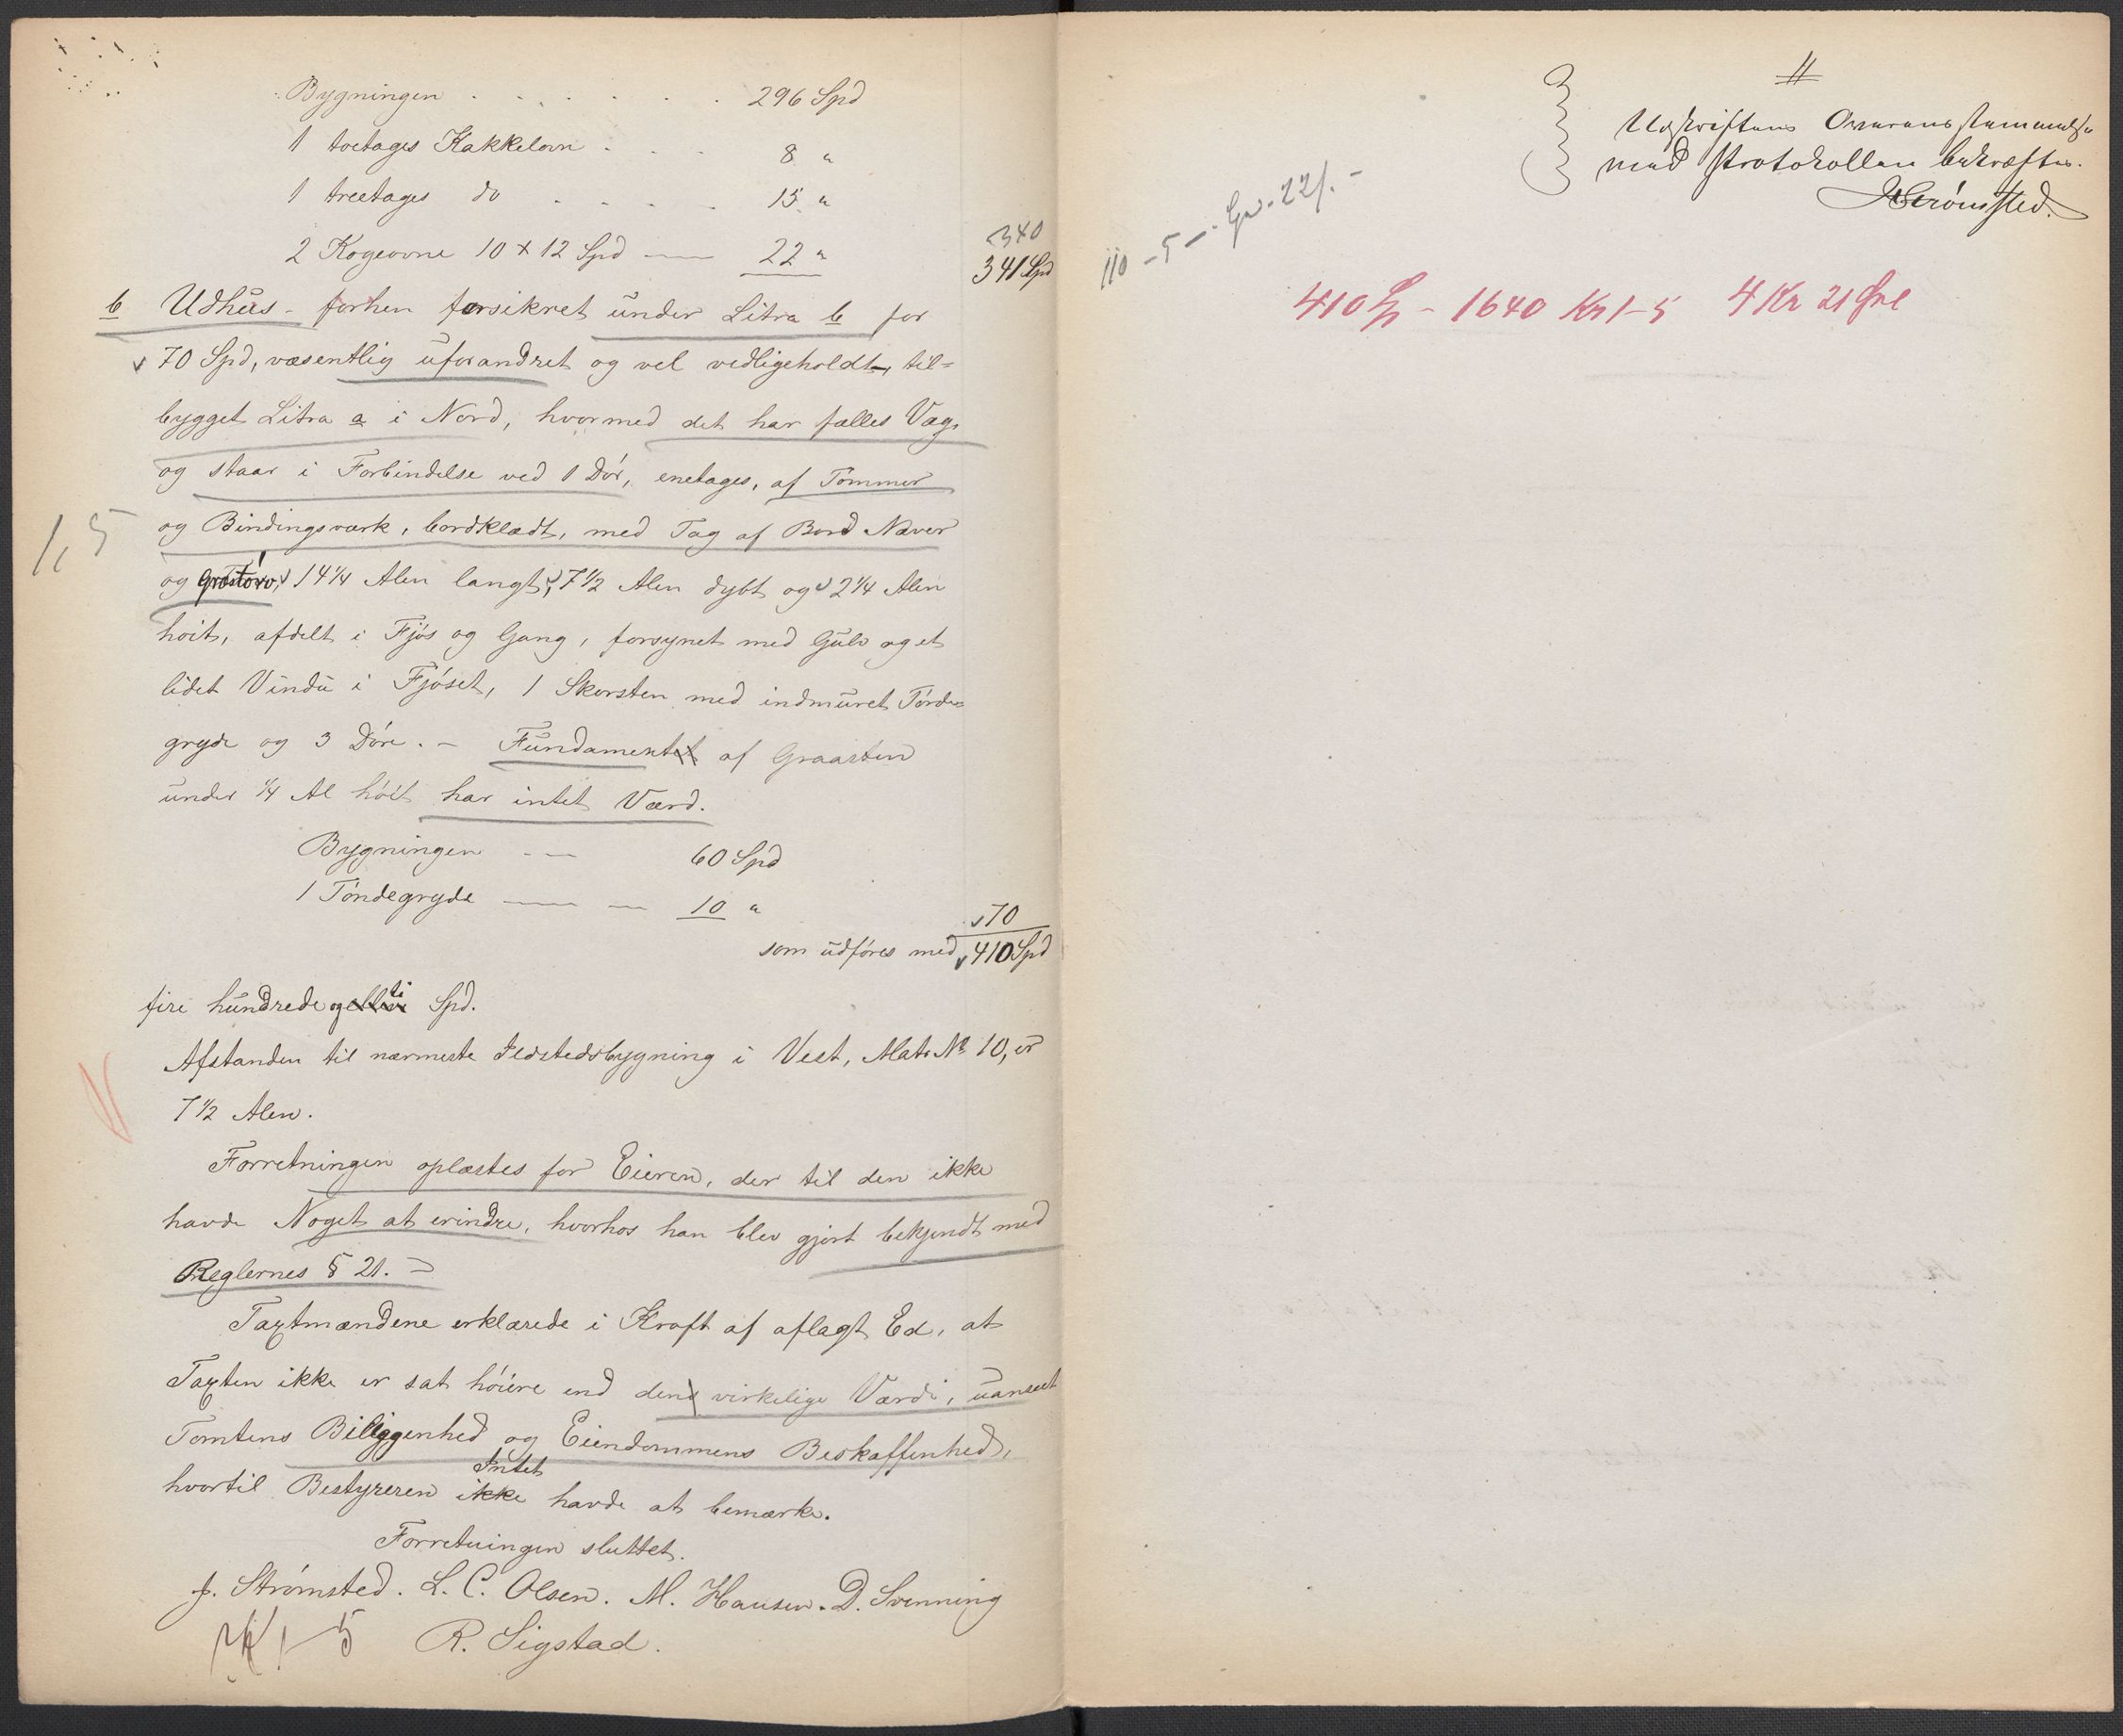 Bygningen . . . . . . . 296 Spd
1 toetages Kakkelovn . . . 8 "
1 treetages do . . . . . 15 "
2 Kogeovne 10 + 12 Spd — 22 "
340
341 Spd
b Udhus - forhen forsikret under Litra b for
70 Spd, væsentlig uforandret og vel vedligeholdt, til=
bygget Litra a i Nord, hvormed det har fælles Væg,
og staar i Forbindelse ved 1 Dör, enetages, af Tömmer
og Bindingsværk, bordklædt, med Tag af Bord Næver
1,5
og Græstörv, 14 1/4 Alen langt, 7 1/2 Alen dybt og 2 1/4 Alen
höit, afdelt i Fjös og Gang, forsynet med Gulv og et
lidet Vindu i Fjöset, 1 Skorsten med indmuret Tönde=
gryde og 3 Döre. - Fundamentet af Graasten
under 1/4 Al höit har intet Værd.
Bygningen — — 60 Spd
1 Töndegryde — — 10 "
70
som udföres med 410 Spd
fire hundrede og elleve ti Spd.
Afstanden til nærmeste Ildstedsbygning i Vest, Mat. No 10, er
7 1/2 Alen.
Forretningen oplæstes for Eieren, der til den ikke
havde Noget at erindre, hvorhos han blev gjort bekjendt med
Reglernes § 21. -
Taxtmændene erklærede i Kraft af aflagt Ed, at
Taxten ikke er sat höiere end den virkelige Værdi, uanseet
Tomtens Biliggenhed og Eiendommens Beskaffenhed,
hvortil Bestyreren ikke Intet havde at bemærke.
Forretningen sluttet.
J. Strömsted. L. C. Olsen. M. Hansen. D. Svenning
R. Sigstad.
1-5
11
Udskriftens Overensstemmelse
med Protokollen bekræftes.
JStrömsted.
110 - 5 -
410 Sp - 1640 Kr 1-5 4 Kr 21 Øre